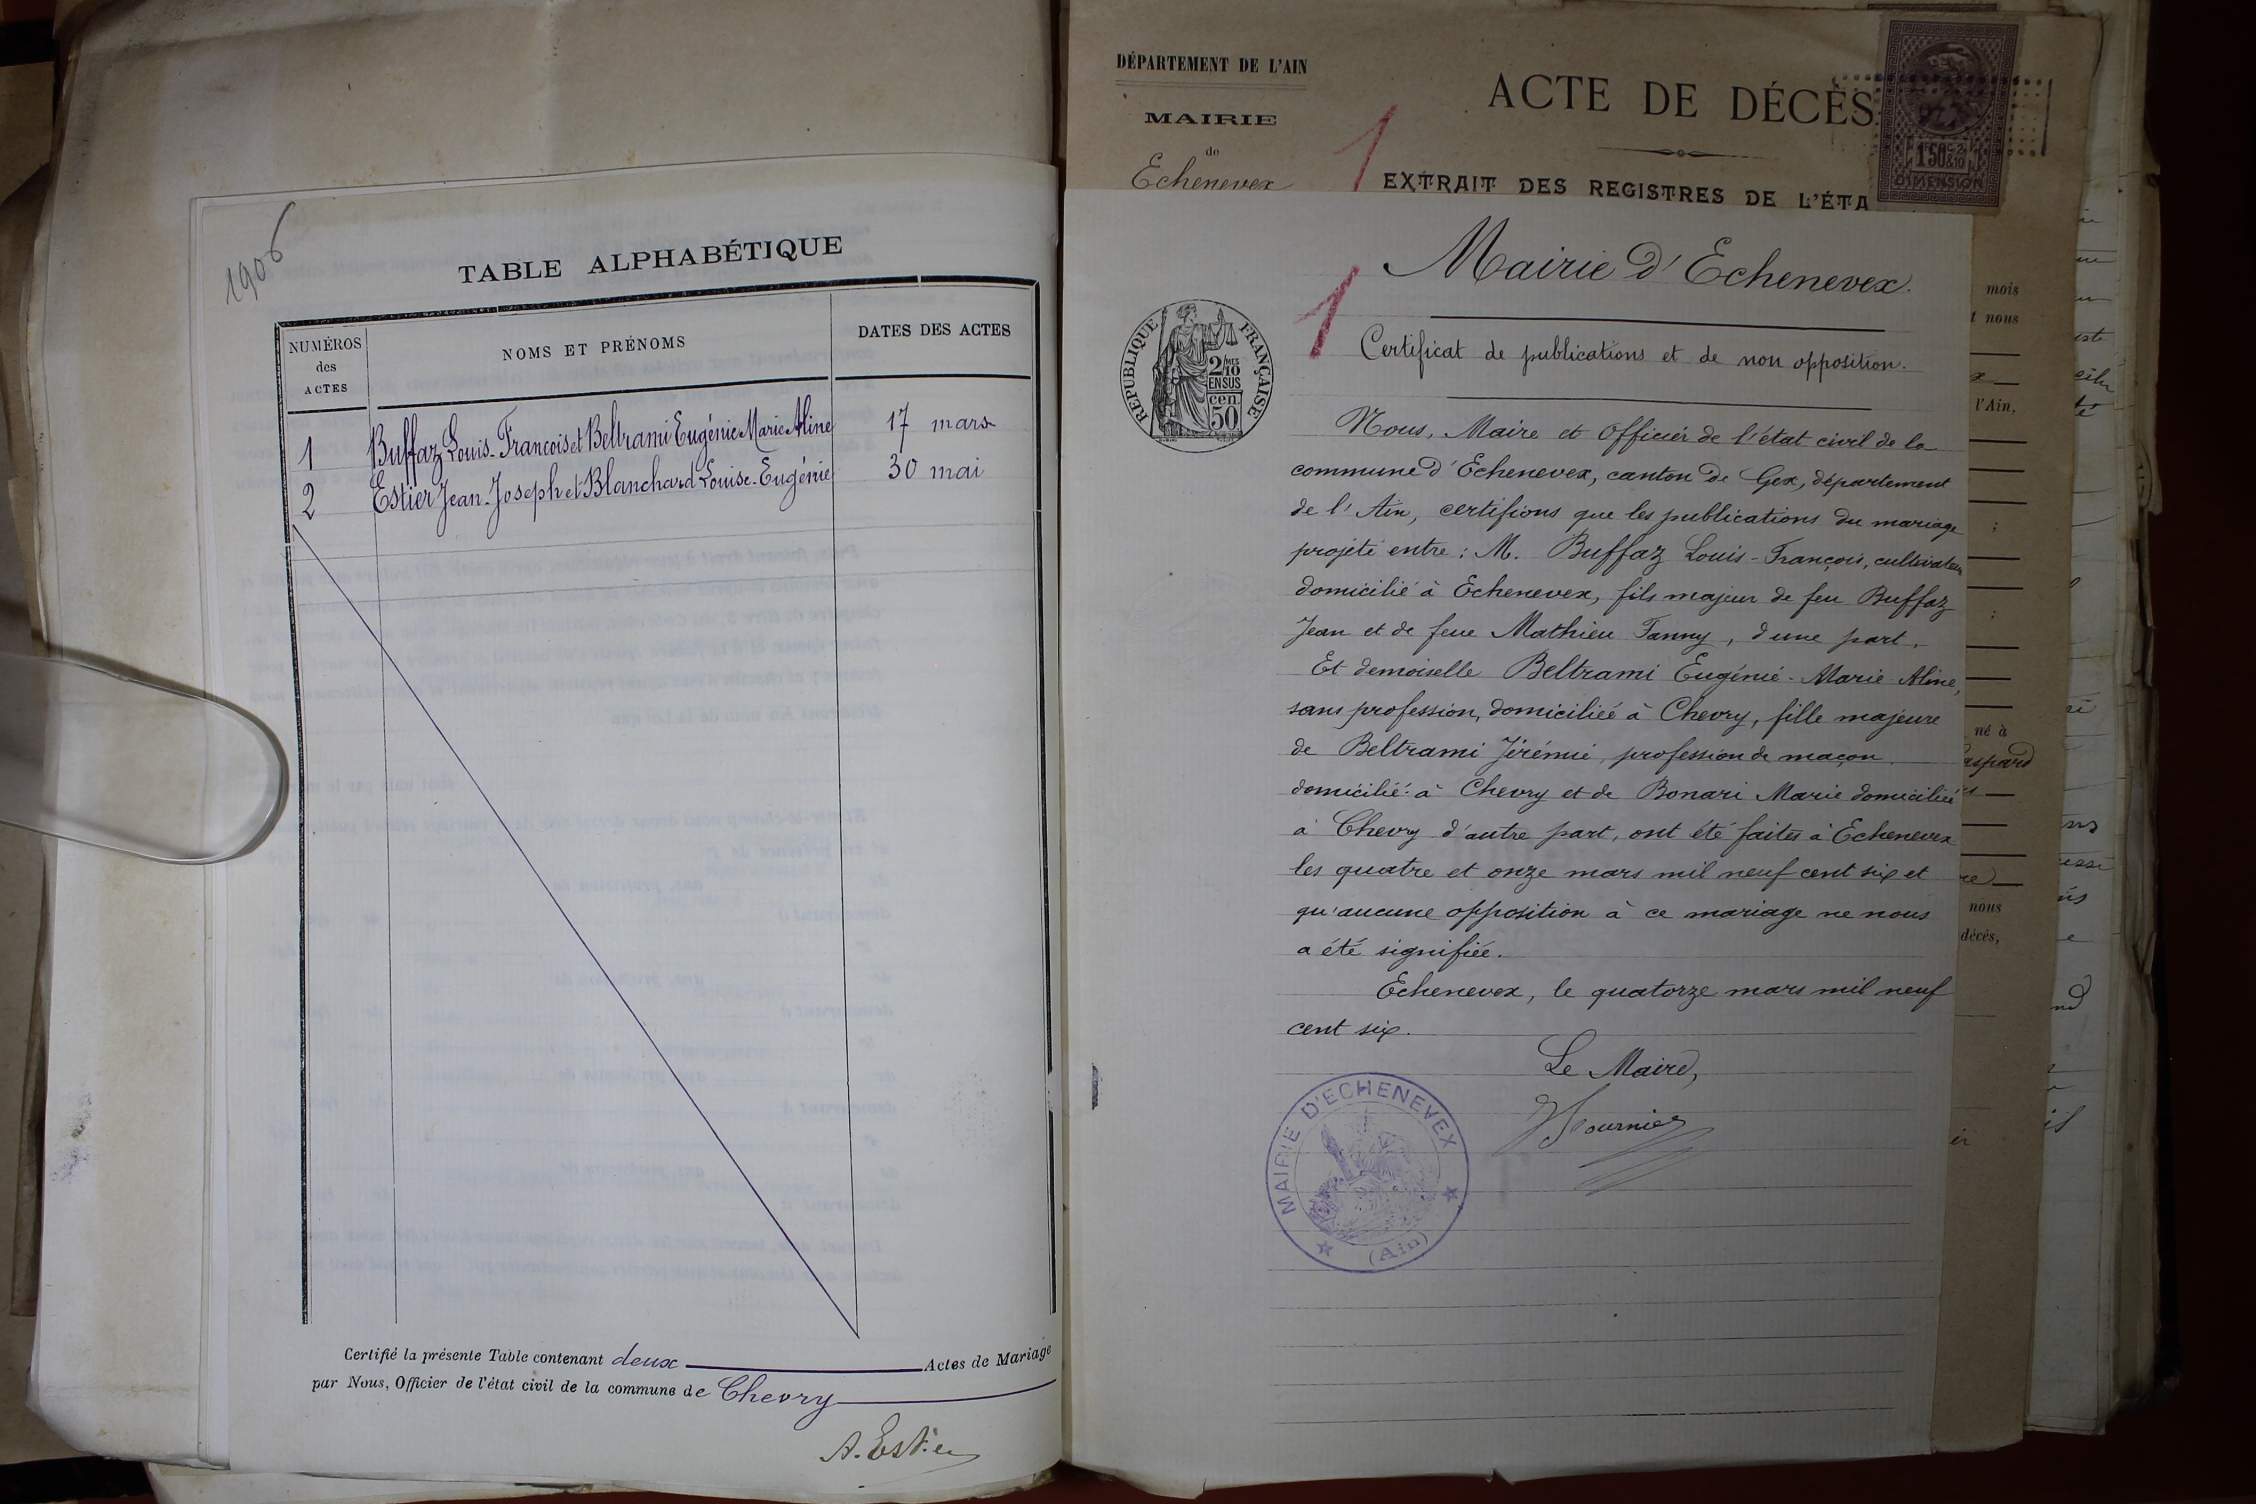 1906
TABLE ALPHABÉTIQUE
NUMÉROS
des
ACTES
NOMS ET PRÉNOMS
DATES DES ACTES
1 Buffaz Louis-François et Beltrami Eugénie Marie Aline 17 mars
2 Estier Jean-Joseph et Blanchard Louise-Eugénie 30 mai
Certifié la présente Table contenant deux Actes de Mariage
par Nous, Officier de l'état civil de la commune de Chevry
A. Estier
DÉPARTEMENT DE L'AIN
MAIRIE
de
Echenevex
ACTE DE DÉCÈS
1
EXTRAIT DES REGISTRES DE L'ÉTA
1f50c 2/10
DIMENSION
Mairie d'Echenevex.
1
RÉPUBLIQUE FRANÇAISE
2/10
EN SUS
50
cen
Certificat de publications et de non opposition.
Nous, Maire et Officier de l'état civil de la
commune d'Echenevex, canton de Gex, département
de l'Ain, certifions que les publications du mariage
projeté entre : M. Buffaz Louis-François, cultivateur
domicilié à Echenevex, fils majeur de feu Buffaz
Jean et de feue Mathieu Fanny, d'une part.
Et demoiselle Beltrami Eugénie-Marie Aline,
sans profession, domiciliée à Chevry, fille majeure
de Beltrami Jérémie, profession de maçon
domicilié à Chevry et de Bonari Marie domiciliée
à Chevry d'autre part, ont été faites à Echenevex
les quatre et onze mars mil neuf cent six et
qu'aucune opposition à ce mariage ne nous
a été signifiée.
Echenevex, le quatorze mars mil neuf
cent six.
Le Maire,
Fournier
MAIRIE D'ECHENEVEX
(Ain)
mois
t nous
l'Ain,
né à
Gaspard
nous
décès,